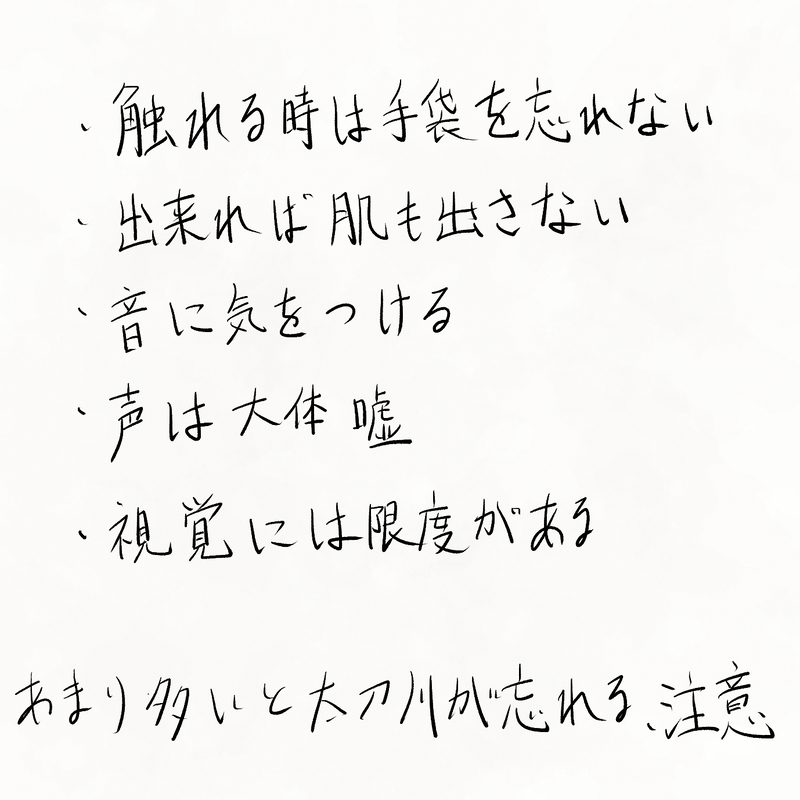 ・触れる時は手袋を忘れない
・出来れば肌も出さない
・音に気をつける
・声は大体嘘
・視覚には限度がある
あまり多いと太刀川が忘れる、注意